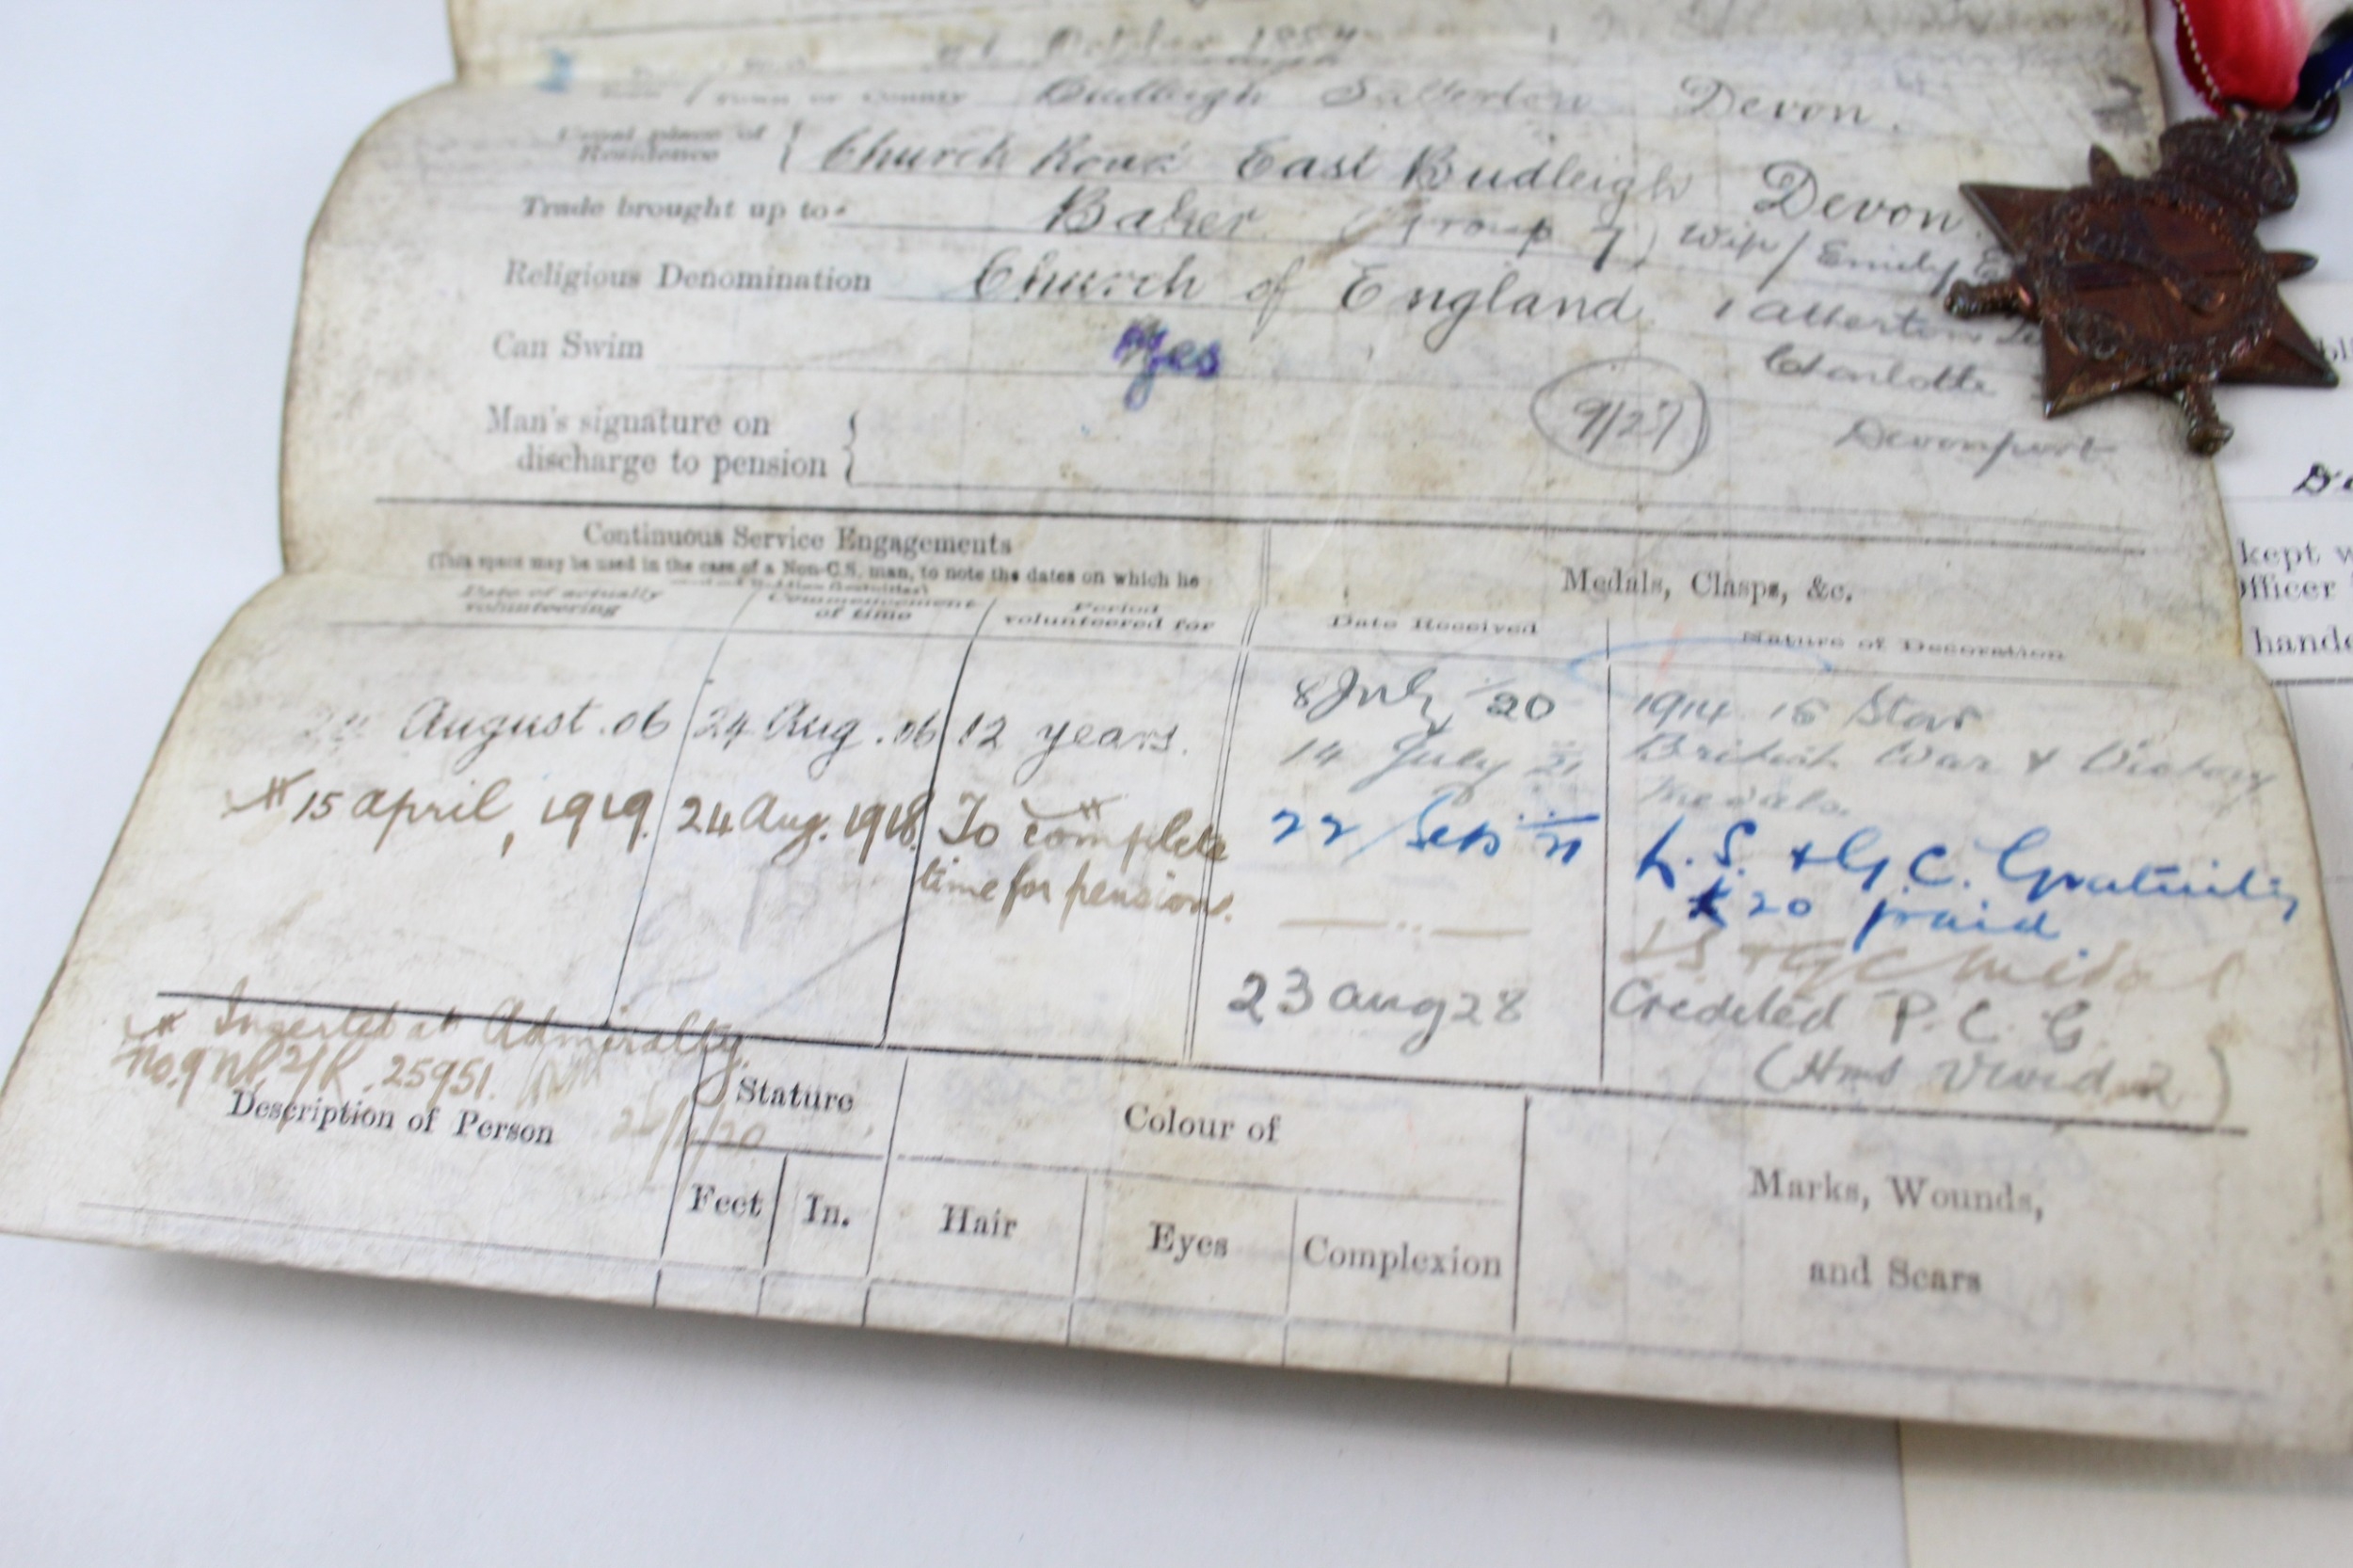 October
Town or County Budleigh Salterton Devon.
Usual place of
Residence
Church Road East Budleigh Devon.
Trade brought up to Baker (Group 7) Wife / Emily
Religious Denomination Church of England
Can Swim Yes
Charlotte
Man's signature on
discharge to pension
9/27
Devonport
Continuous Service Engagements
(This space may be used in the case of a Non-C.S. man, to note the dates on which he
Medals, Clasps, &c.
Date of actually
volunteering
Commencement
of time
Period
volunteered for
Date Received
Nature of Decoration
August .06 24 Aug .06 12 years.
8 July /20 1914 15 Star
14 July 21 British War & Victory
Medals.
* 15 april, 1919. 24 Aug. 1918. To complete
time for pension.
22 Sep 21 L.S. & G.C. Gratuity
£20 paid
LS & GC Medal
23 aug 28 Credited P.C.G
(Hms Vivid 2)
* Inserted at Admiralty.
25951.
Description of Person
Stature
Colour of
Marks, Wounds,
and Scars
Feet In. Hair Eyes Complexion
kept
Officer
hande